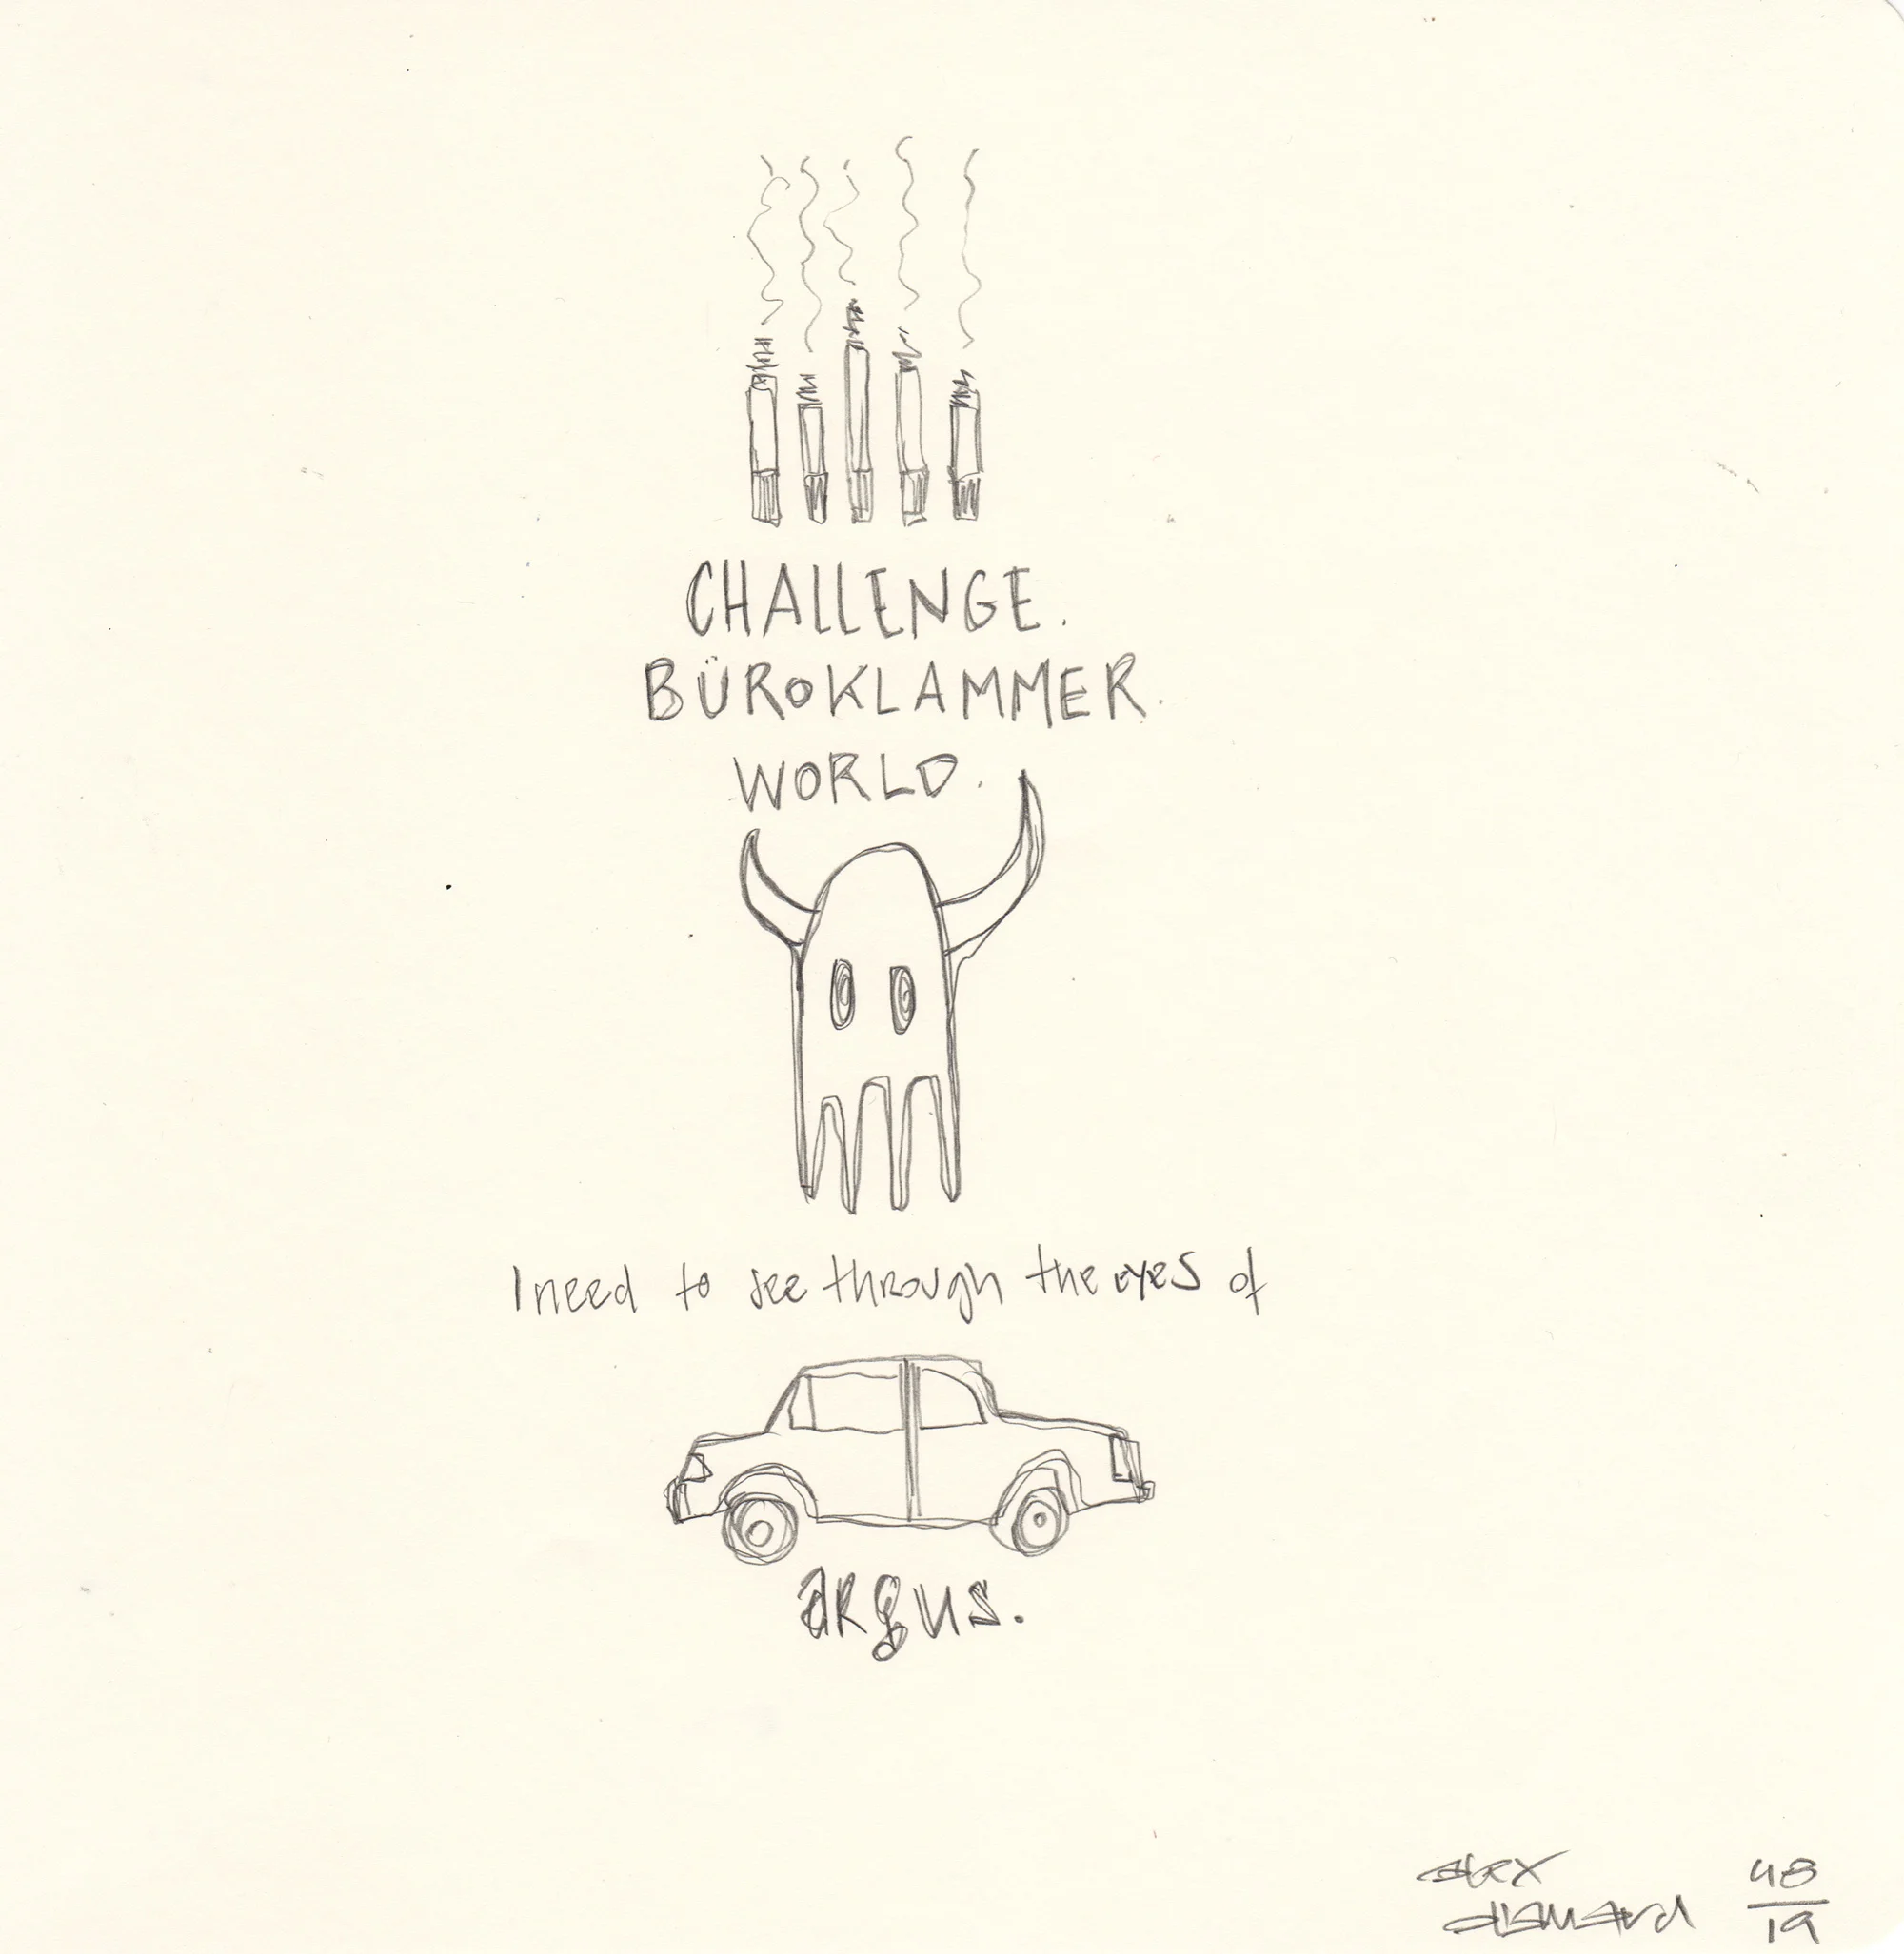 CHALLENGE.
BÜROKLAMMER.
WORLD.
I need to see through the eyes of
argus.
alex
diamond
48
19